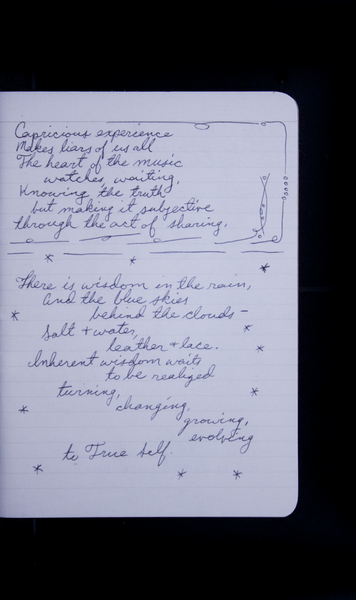 Capricious experience
Makes liars of us all
The heart of the music
watches, waiting,
Knowing the truth
but making it subjective
through the act of sharing.
There is wisdom in the rain,
And the blue skies
behind the clouds -
Salt + water,
leather + lace.
Inherent wisdom waits
to be realized
turning,
changing,
growing,
evolving
to True Self.